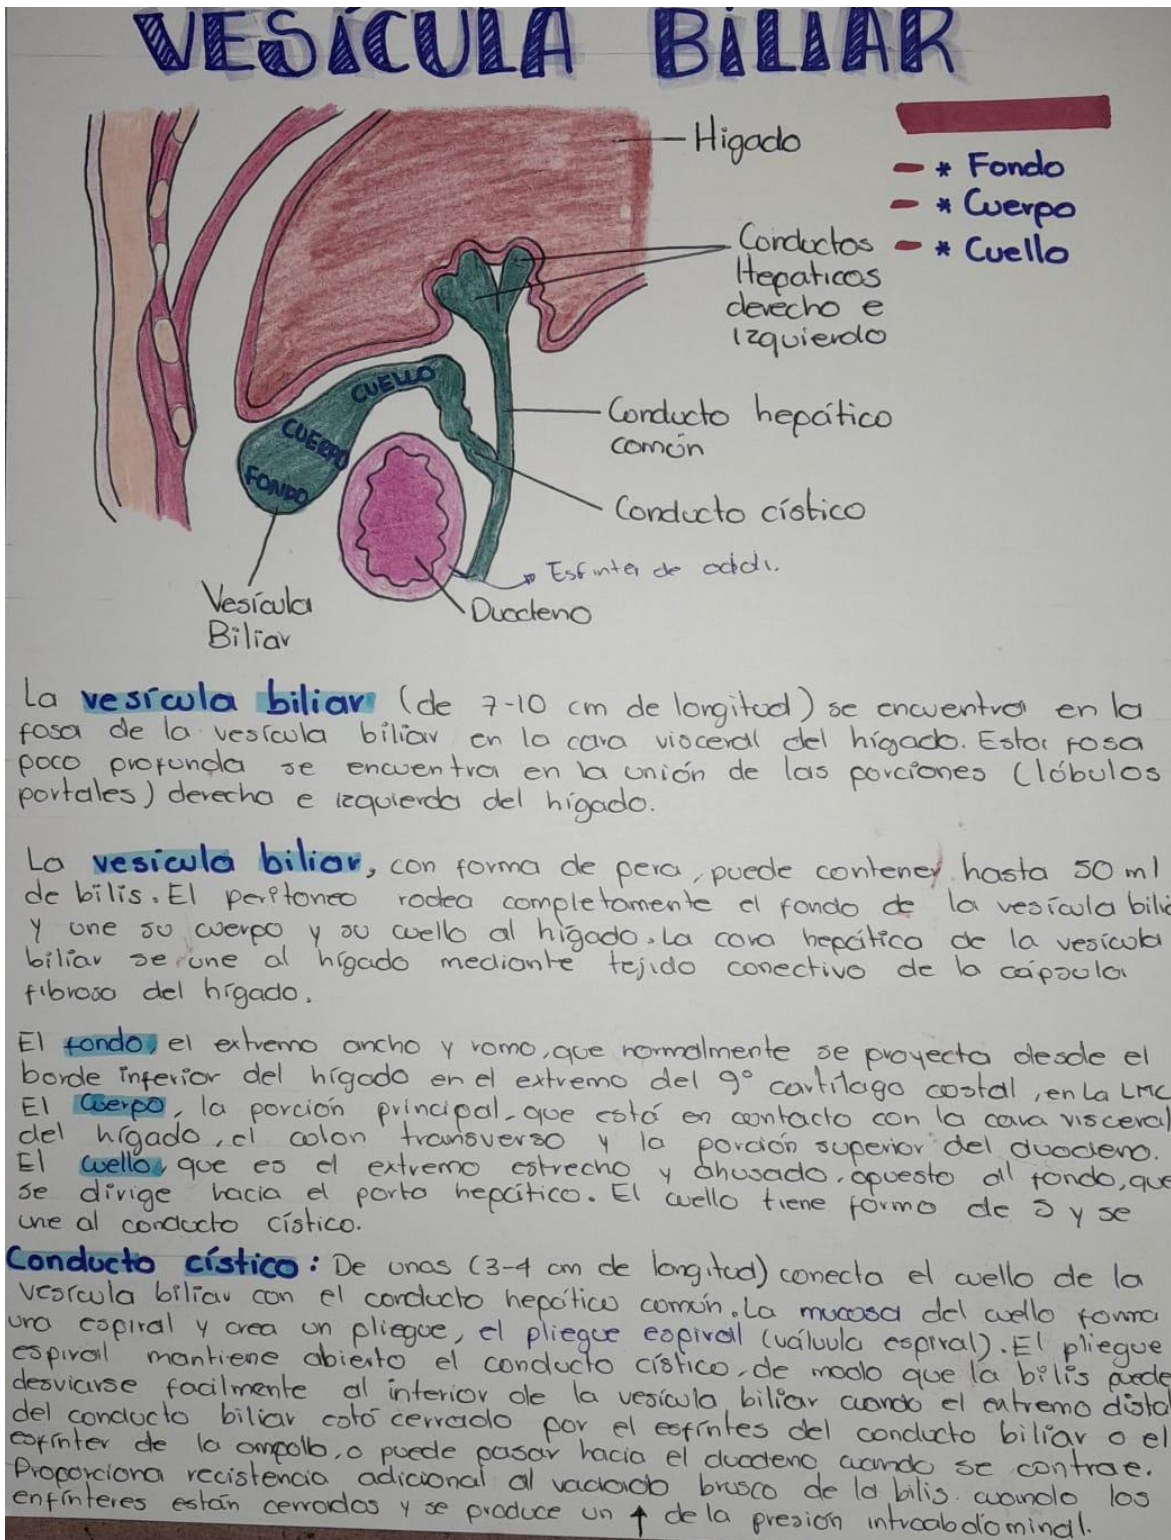 VESÍCULA BILIAR
Higado
* Fondo
* Cuerpo
* Cuello
Conductos
Hepaticos
derecho e
izquierdo
CUELLO
CUERPO
FONDO
Conducto hepático
común
Conducto cístico
Esfinter de oddi.
Duodeno
Vesícula
Biliar
La vesícula biliar (de 7-10 cm de longitud) se encuentra en la
fosa de la vesícula biliar en la cara visceral del hígado. Esta fosa
poco profunda se encuentra en la unión de las porciones (lóbulos
portales) derecha e izquierda del hígado.
La vesicula biliar, con forma de pera, puede contener hasta 50 ml
de bilis. El peritoneo rodea completamente el fondo de la vesícula bilia
y une su cuerpo y su cuello al hígado. La cara hepática de la vesícula
biliar se une al hígado mediante tejido conectivo de la cápsula
fibrosa del hígado.
El fondo, el extremo ancho y romo, que normalmente se proyecta desde el
borde inferior del hígado en el extremo del 9° cartílago costal, en La LMC
El Cuerpo, la porción principal, que está en contacto con la cara visceral
del hígado, el colon transverso y la porción superior del duodeno.
El cuello, que es el extremo estrecho y ahusado, opuesto al fondo, que
se dirige hacia el porta hepático. El cuello tiene forma de S y se
une al conducto cístico.
Conducto cístico: De unas (3-4 cm de longitud) conecta el cuello de la
vesícula biliar con el conducto hepático común. La mucosa del cuello forma
una espiral y crea un pliegue, el pliegue espiral (válvula espiral). El pliegue
espiral mantiene abierto el conducto cístico, de modo que la bilis puede
desviarse facilmente al interior de la vesícula biliar cuando el extremo distal
del conducto biliar está cerrado por el esfíntes del conducto biliar o el
esfínter de la ampolla, o puede pasar hacia el duodeno cuando se contrae.
Proporciona recistencia adicional al vaciado brusco de la bilis. cuando los
enfínteres están cerrados y se produce un ↑ de la presión intraabdominal.